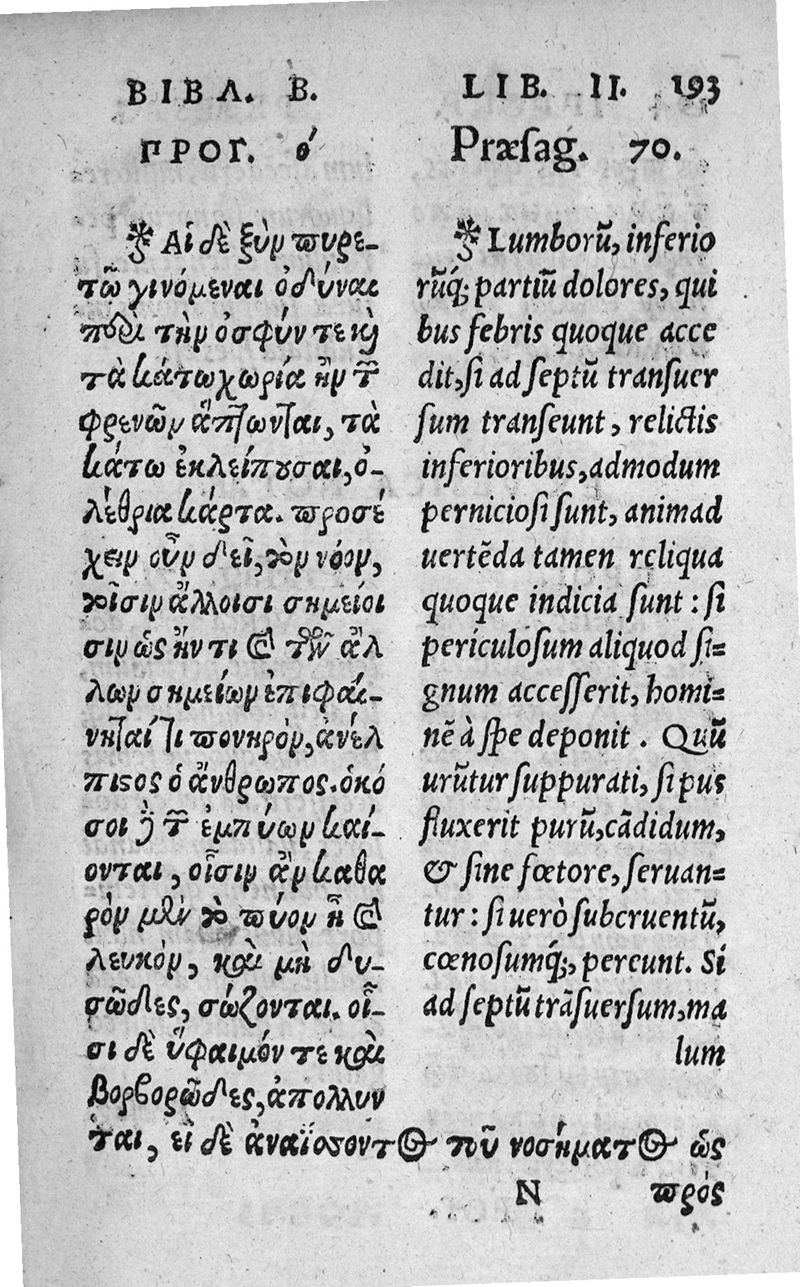 ΒΙΒΛ. Β.
ΠΡΟΓ. ο΄
Αἱ δὲ ξὺν πυρε-
τῷ γινόμεναι ὀδύναι
περὶ τὴν ὀσφύν τε καὶ
τὰ κάτω χωρία ἢν τῶν
φρενῶν ἅπτωνται, τὰ
κάτω ἐκλείπουσαι, ὀ-
λέθρια κάρτα. προσέ
χειν οὖν δεῖ, τὸν νόον,
τοῖσιν ἄλλοισι σημείοι
σιν ὡς ἤν τι καὶ τῶν ἀλ
λων σημείων ἐπιφαί-
νηταί τι πονηρὸν, ἀνέλ
πιστος ὁ ἄνθρωπος. ὁκό
σοι δὲ τῶν ἐμπύων καί-
ονται, οἷσιν ἂν καθα
ρὸν μὲν τὸ πύον ᾖ καὶ
λευκὸν, καὶ μὴ δυ-
σῶδες, σώζονται. οἷ-
σι δὲ ὕφαιμόν τε καὶ
βορβορῶδες, ἀπόλλυν
LIB. II. 193
Præsag. 70.
Lumborũ, inferio
rũq; partiũ dolores, qui
bus febris quoque acce
dit, si ad septũ transuer
sum transeunt, relictis
inferioribus, admodum
perniciosi sunt, animad
uertẽda tamen reliqua
quoque indicia sunt: si
periculosum aliquod si=
gnum accesserit, homi=
nẽ à spe deponit. Quũ
urũtur suppurati, si pus
fluxerit purũ, cãdidum,
& sine fœtore, seruan=
tur: si uerò subcruentũ,
cœnosumq;, pereunt. Si
ad septũ trãsuersum, ma
lum
ται, εἰ δὲ ἀναΐσσοντος τοῦ νοσήματος ὡς
N πρός